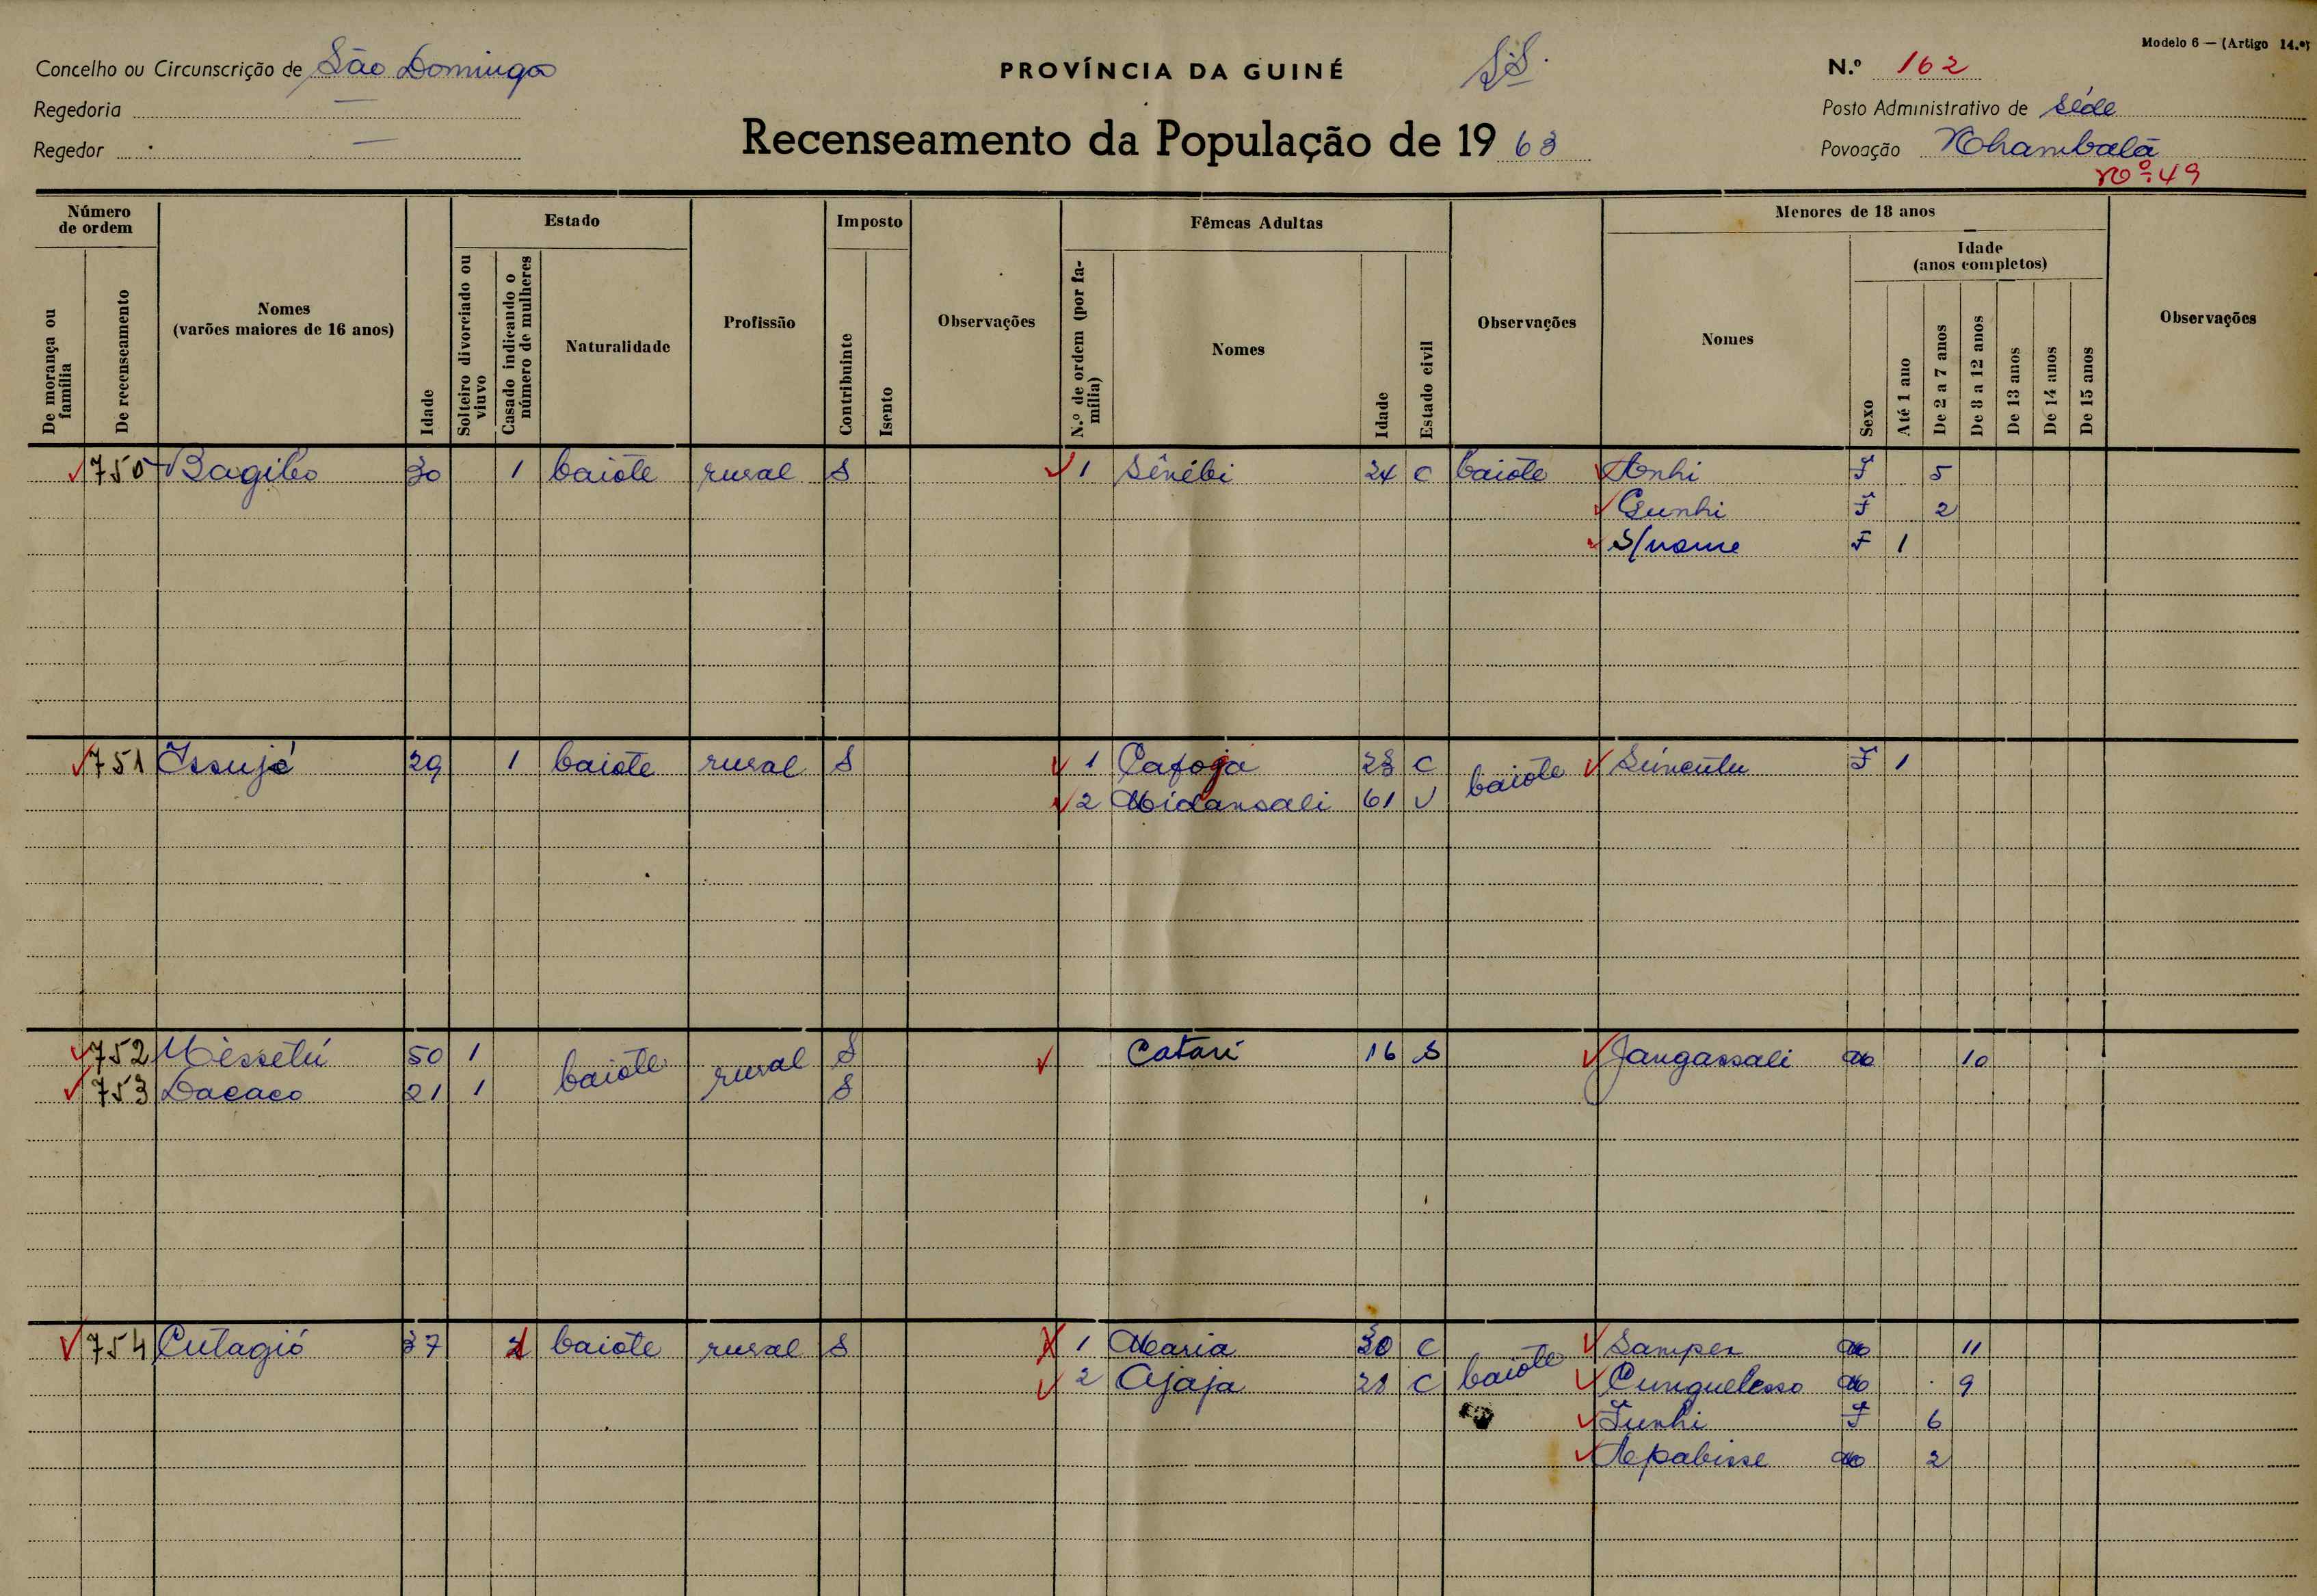 Modelo 6 — (Artigo 14.º)
Concelho ou Circunscrição de São Domingos
PROVÍNCIA DA GUINÉ
N.º 162
Regedoria —
Posto Administrativo de Séde
Recenseamento da População de 1963
Regedor —
Povoação Nhambalã
Nº 49
Número de ordem
Estado
Imposto
Fêmeas Adultas
Menores de 18 anos
Idade
(anos completos)
De morança ou família
De recenseamento
Nomes
(varões maiores de 16 anos)
Idade
Solteiro divorciado ou viuvo
Casado indicando o número de mulheres
Naturalidade
Profissão
Contribuinte
Isento
Observações
N.º de ordem (por família)
Nomes
Idade
Estado civil
Observações
Nomes
Sexo
Até 1 ano
De 2 a 7 anos
De 8 a 12 anos
De 13 anos
De 14 anos
De 15 anos
Observações
750 Bagibo 30 1 baiote rural S 1 Sênébi 24 C baiote Anhi F 5
Gunhi F 2
S/nome F 1
751 Issujé 29 1 baiote rural S 1 Cafoja 28 C baiote Sincutu F 1
2 Midansali 61 V
752 Messetú 50 1 baiote rural S Catari 16 S Jangassali M 10
753 Dacaco 21 1 S
754 Cutagió 37 baiote rural S 1 Maria 30 C baiote Sampen M 11
2 Ajaja 28 C Cunguelesso M 9
Junhi F 6
Apabisse M 2